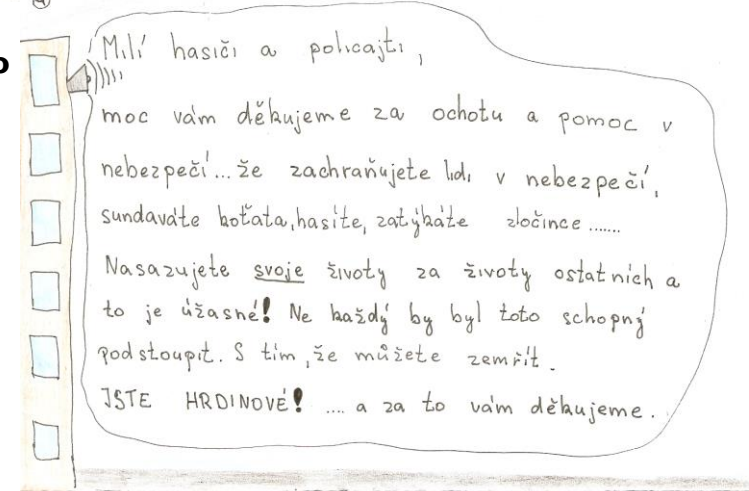 Milí hasiči a policajti,
moc vám děkujeme za ochotu a pomoc v
nebezpečí... že zachraňujete lidi v nebezpečí,
sundaváte koťata, hasíte, zatýkáte zločince .......
Nasazujete svoje životy za životy ostatních a
to je úžasné! Ne každý by byl toto schopný
podstoupit. S tím, že můžete zemřít.
JSTE HRDINOVÉ! .... a za to vám děkujeme.